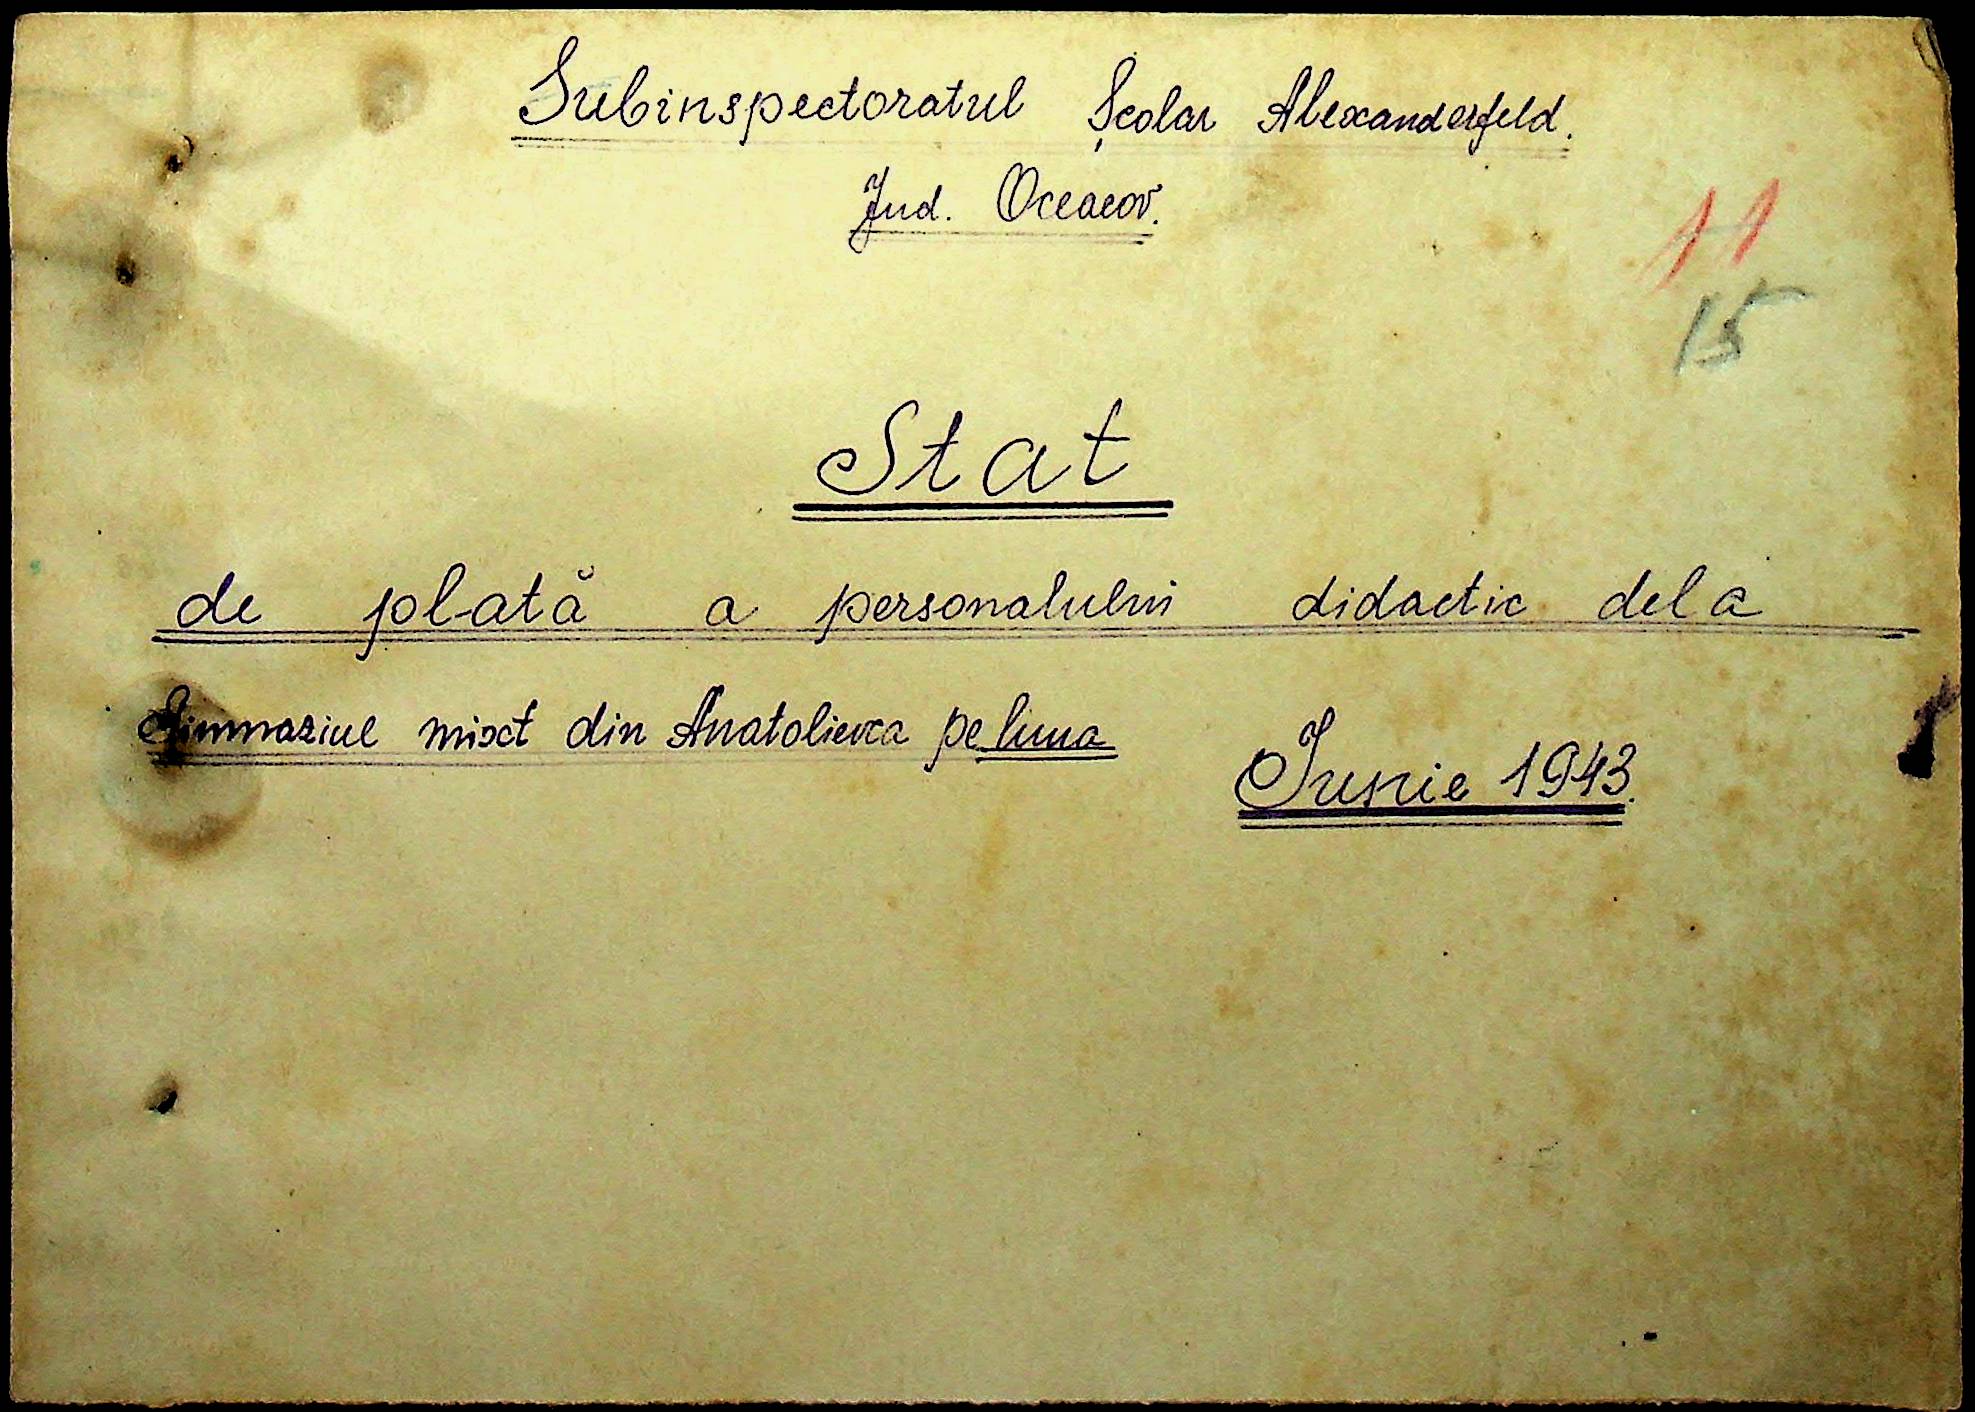 Subinspectoratul Școlar Alexanderfeld.
Jud. Oceacov.
11
15
Stat
de plată a personalului didactic dela
Gimnaziul mixt din Anatolievca pe luna
Iunie 1943.